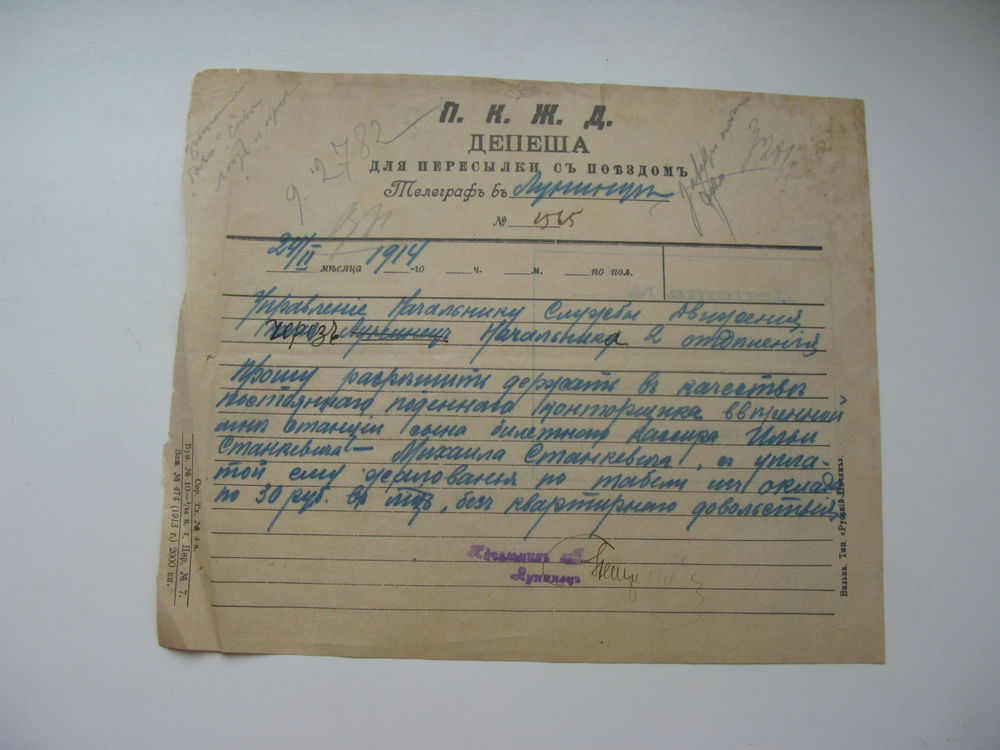 П. К. Ж. Д.
ДЕПЕША
ДЛЯ ПЕРЕСЫЛКИ СЪ ПОѢЗДОМЪ
Телеграфъ въ Лунинецъ
№ 1515
9. 2782
24/II мѣсяца 1914 -го ч. м. по пол.
Управленіе Начальнику Службы Движенія
Черезъ Лунинецъ Начальника 2 отдѣленія
Прошу разрѣшить держать въ качествѣ
постояннаго поденнаго конторщика ввѣренной
мнѣ станціи сына билетнаго кассира Ильи
Станкевича – Михаила Станкевича, съ упла-
той ему жалованья по табели изъ оклада
по 30 руб. въ мѣс, безъ квартирнаго довольствія
Начальникъ
Лунинецъ
Сер. Тл. № 4-а.
Бум. № 10—
Зак. № 474 (1913 г.) 2000 кн.
Вильна. Тип. «Русскій Починъ».